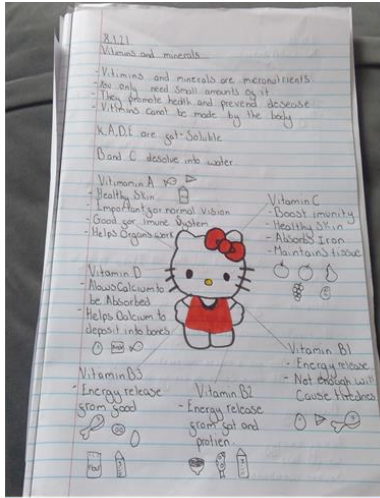 8.1.21
Vitimins and minerals
- Vitimins and minerals are micronutrients
- You only need small amounts of it
- They promote health and prevend desease
- Vitimins canot be made by the body
K, A, D, E are fat-Soluble
B and C desolve into water
Vitimamin A
- Healthy Skin
- Important for normal vision
- Good for imune System
- Helps Organs work
Vitamin C
- Boost imunity
- Healthy Skin
- Absorbs Iron
- Maintains tissue
Vitamin D
- Alows Calcium to
be Absorbed
- Helps Calcium to
deposit into bones
Vitamin B1
- Energy release
- Not enough will
Cause tiredness
Vitamin B3
- Energy release
from food
Vitamin B2
- Energy release
from fat and
protien.